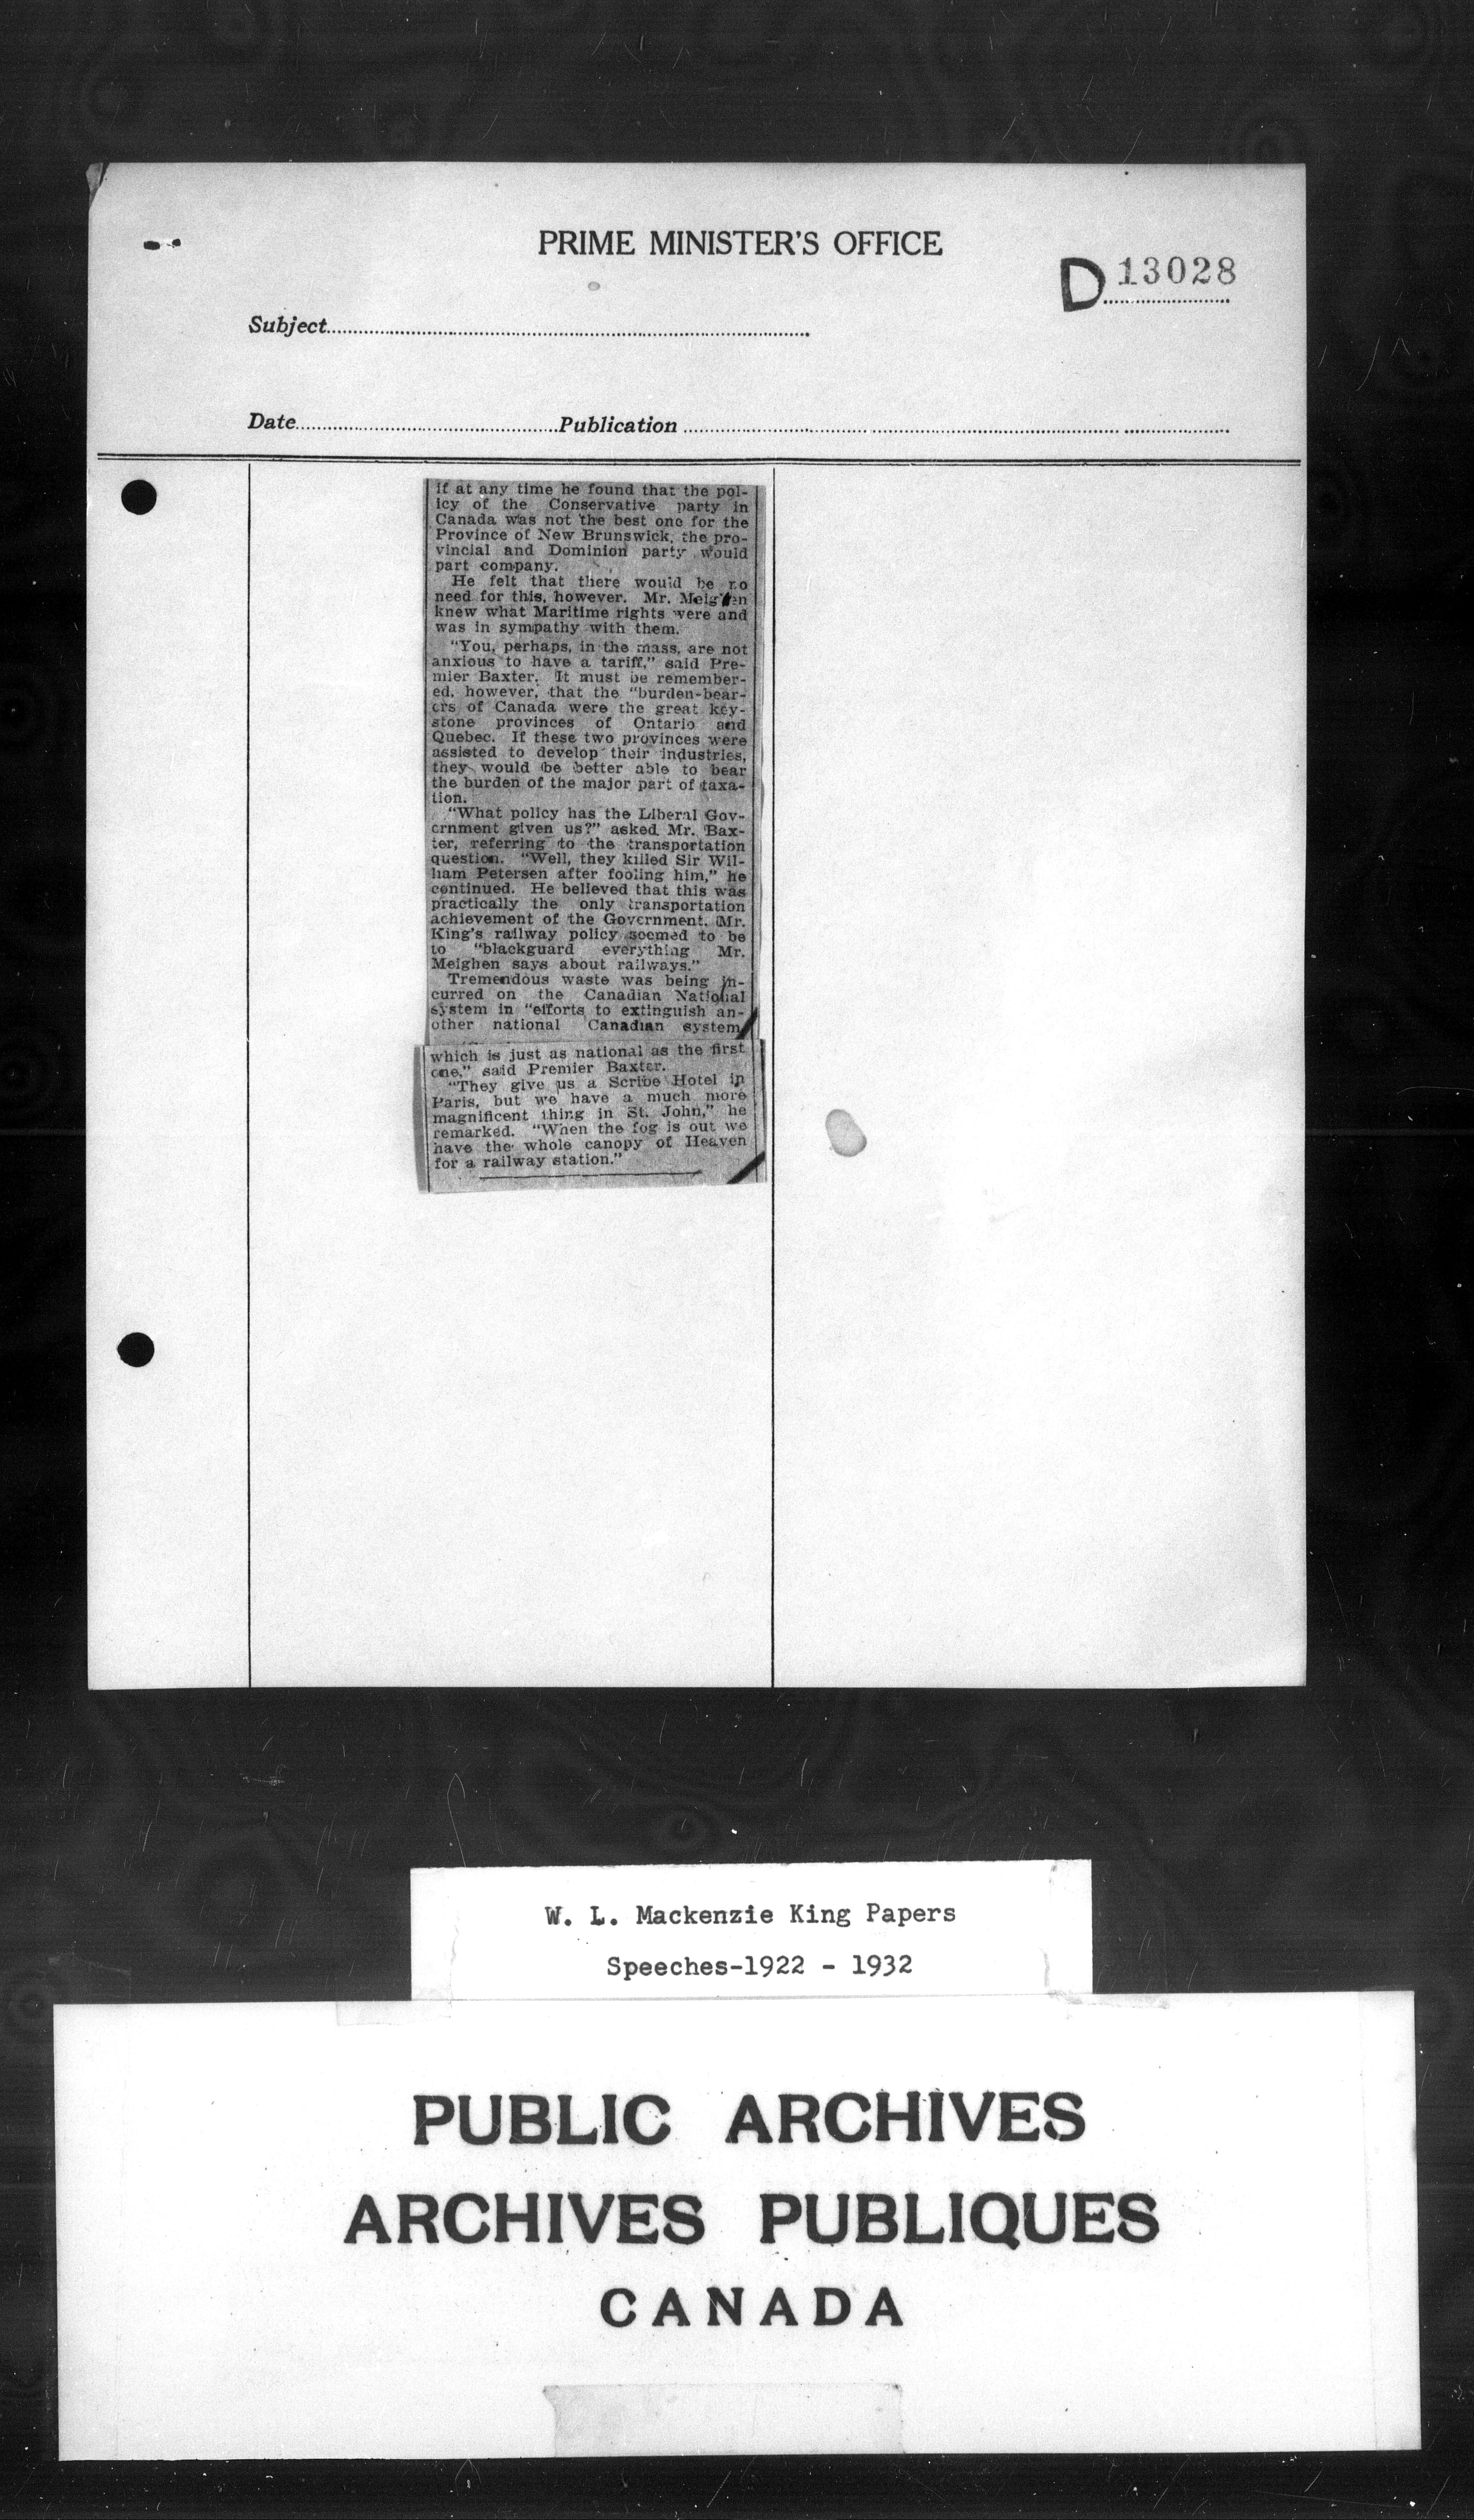 PRIME MINISTER'S OFFICE
D 13028
Subject
Date Publication
if at any time he found that the pol-
icy of the Conservative party in
Canada was not the best one for the
Province of New Brunswick, the pro-
vincial and Dominion party would
part company.
He felt that there would be no
need for this, however. Mr. Meighen
knew what Maritime rights were and
was in sympathy with them.
"You, perhaps, in the mass, are not
anxious to have a tariff," said Pre-
mier Baxter. It must be remember-
ed, however, that the "burden-bear-
ers of Canada were the great key-
stone provinces of Ontario and
Quebec. If these two provinces were
assisted to develop their industries,
they would be better able to bear
the burden of the major part of taxa-
tion.
"What policy has the Liberal Gov-
ernment given us?" asked Mr. Bax-
ter, referring to the transportation
question. "Well, they killed Sir Wil-
liam Petersen after fooling him," he
continued. He believed that this was
practically the only transportation
achievement of the Government. Mr.
King's railway policy seemed to be
to "blackguard everything Mr.
Meighen says about railways."
Tremendous waste was being in-
curred on the Canadian National
system in "efforts to extinguish an-
other national Canadian system
which is just as national as the first
one," said Premier Baxter.
"They give us a Scribe Hotel in
Paris, but we have a much more
magnificent thing in St. John," he
remarked. "When the fog is out we
have the whole canopy of Heaven
for a railway station."
W. L. Mackenzie King Papers
Speeches-1922 - 1932
PUBLIC ARCHIVES
ARCHIVES PUBLIQUES
CANADA